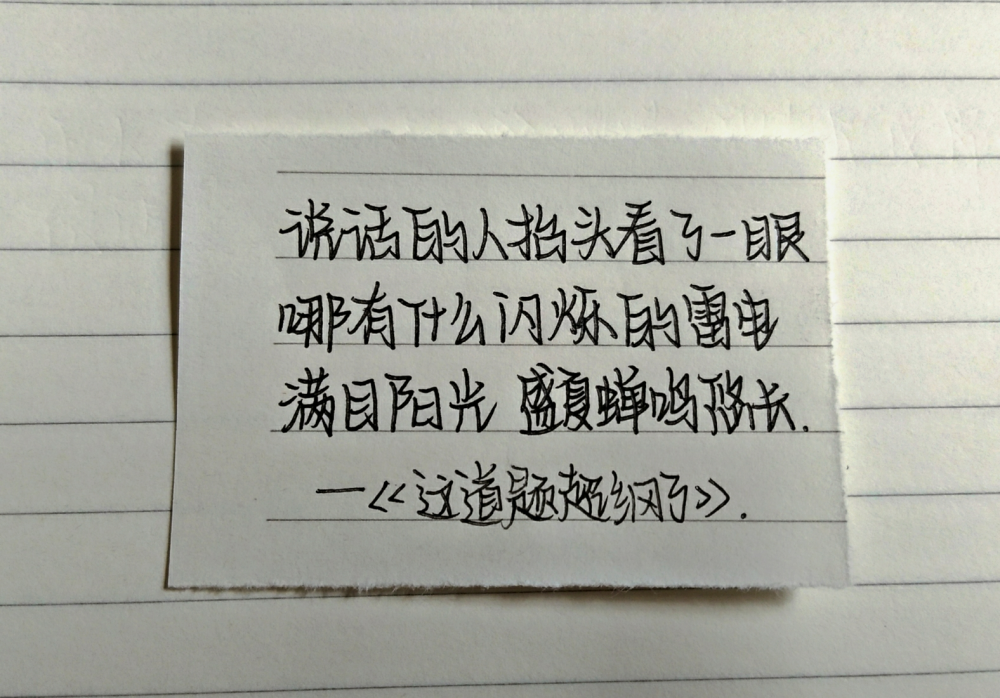 说话的人抬头看了一眼
哪有什么闪烁的雷电
满目阳光 盛夏蝉鸣悠长.
—《这道题超纲了》.